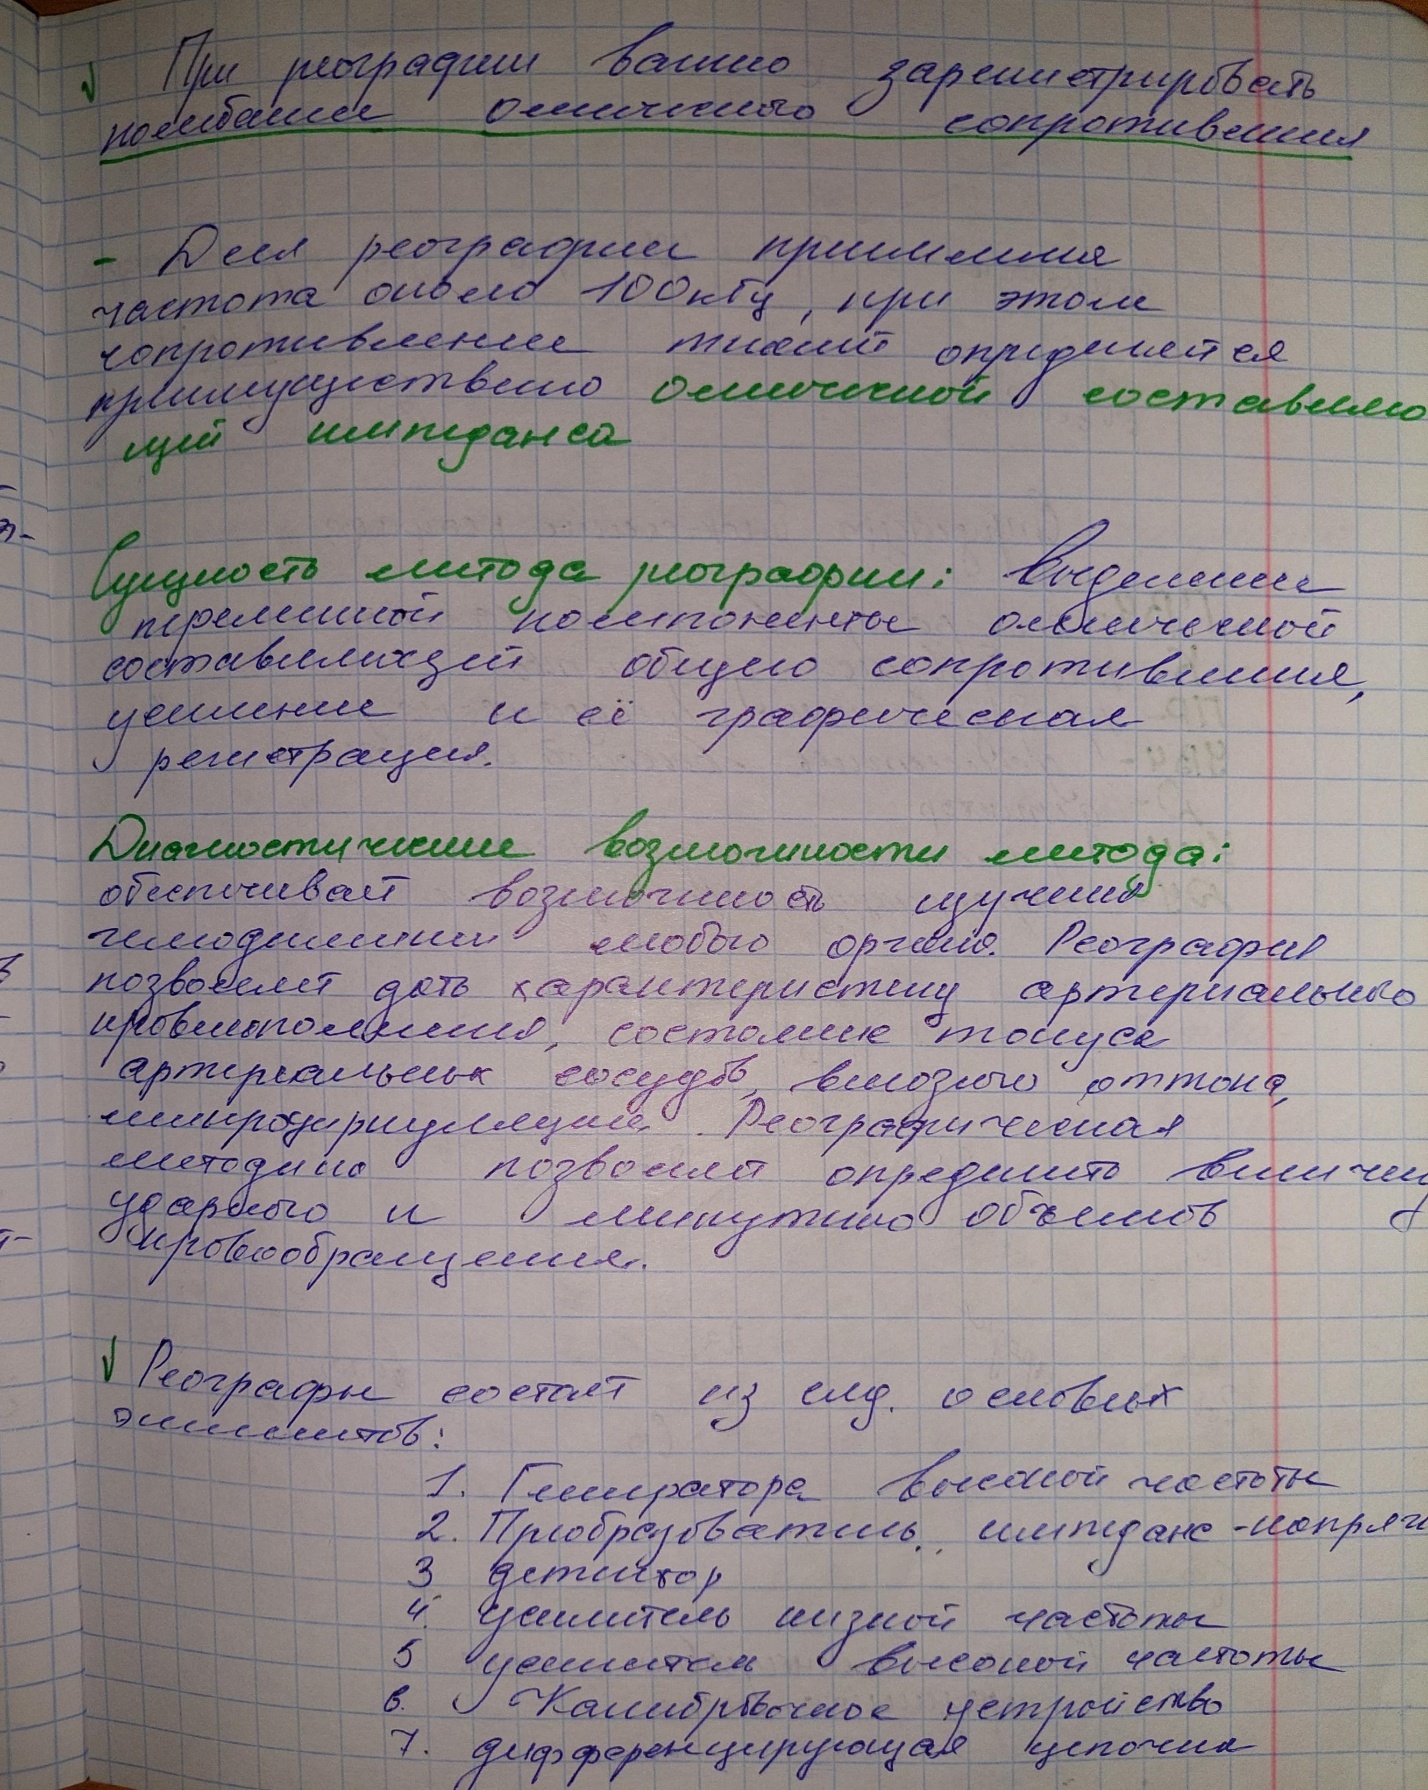 При реографии важно зарегистрировать
колебания омического сопротивления
- Для реографии приемлема
частота около 100 кГц, при этом
сопротивление тканей определяется
преимущественно омической составляю
щей импеданса
Сущность метода реографии: Выделение
переменной компоненты омической
составляющей общего сопротивления,
усиление и её графическая
регистрация.
Диагностические возможности метода:
обеспечивает возможность изучения
гемодинамики любого органа. Реография
позволяет дать характеристику артериального
кровенаполнения, состояние тонуса
артериальных сосудов, венозного оттока,
микроциркуляции. Реографическая
методика позволяет определить величину
ударного и минутного объемов
кровообращения.
Реографы состоят из след. основных
элементов:
1. Генератора высокой частоты
2. Преобразователь импеданс-напряж
3 детектор
4. усилитель низкой частоты
5 усилитель высокой частоты
6. Калибровочное устройство
7. дифференцирующая цепочка